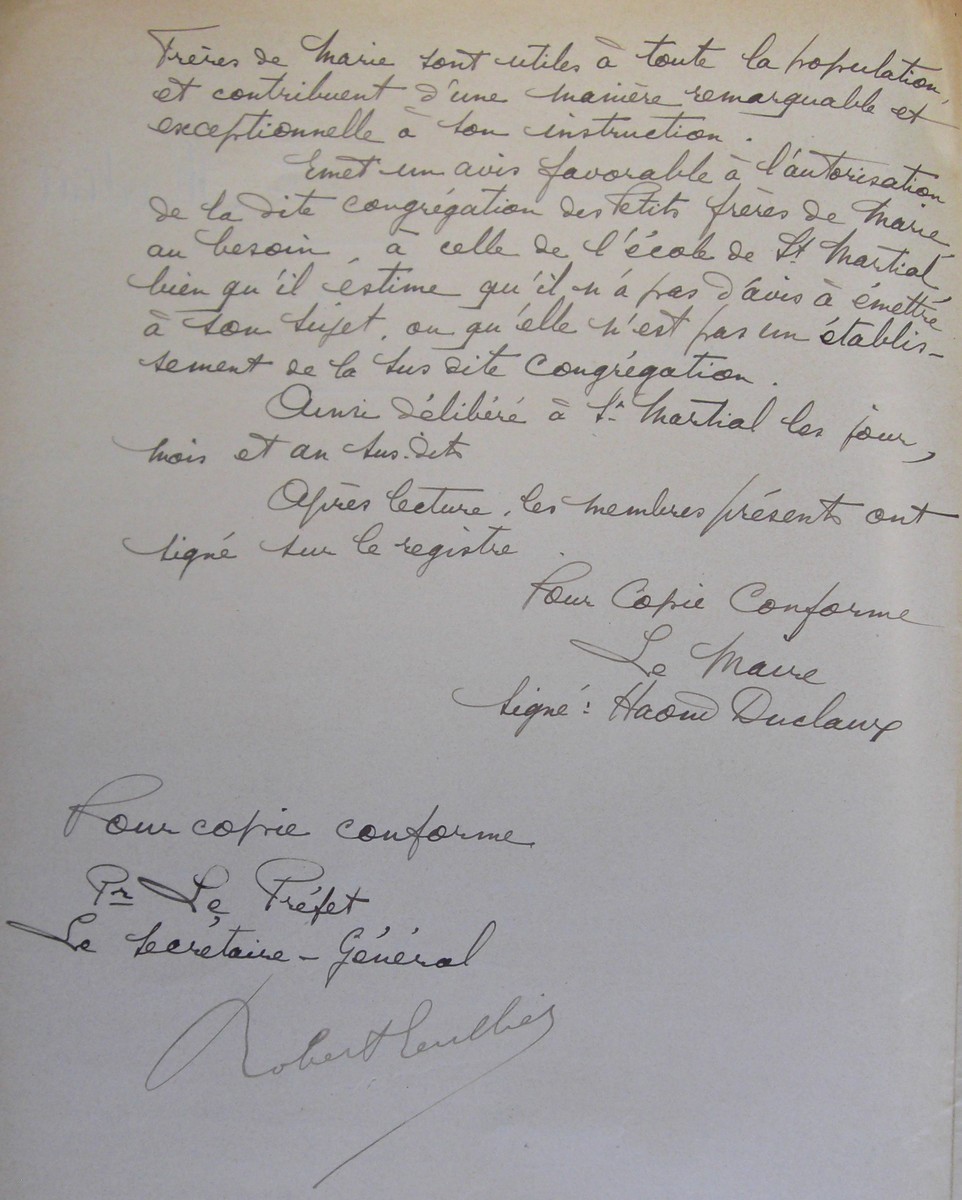 Frères de Marie sont utiles à toute la population,
et contribuent d'une manière remarquable et
exceptionnelle à son instruction.
Emet un avis favorable à l'autorisation
de la dite congrégation des Petits frères de Marie,
au besoin à celle de l'école de St Martial,
bien qu'il éstime qu'il n'a pas d'avis à émettre
à son sujet, ou qu'elle n'est pas un établis-
sement de la sus dite Congrégation.
Ainsi délibéré à St Martial les jour,
mois et an sus.dits
Après lecture, les membres présents ont
signé sur le registre.
Pour Copie Conforme
Le Maire
signé: Haond Duclaux
Pour copie conforme
Pr Le Préfet
Le Secrétaire-Général
Robert